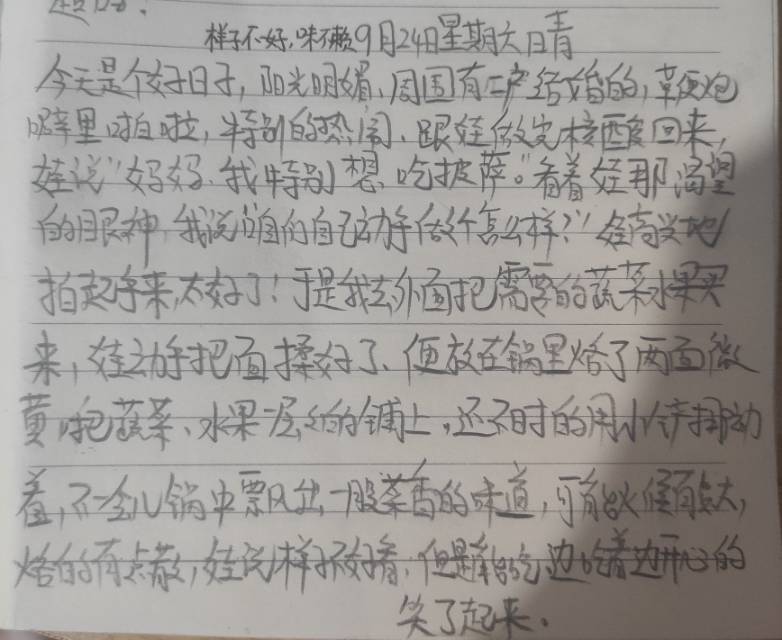 样子不好,味不赖9月24日星期六日青
今天是个好日子,阳光明媚,周围有二户结婚的,草便炮
噼里啪啦,特别的热闹、跟娃做完核酸回来,
娃说"妈妈、我特别想吃披萨。"看着娃那渴望
的眼神,我说"咱们自己动手做个怎么样?"娃高兴地
拍起手来,太好了!于是我去外面把需要的蔬菜水果买
来,娃动手把面揉好了、便放在锅里烙了两面微
黄,把蔬菜、水果一层层的铺上,还不时的用小铲挪动
着,不一会儿锅中飘出一股菜香的味道,可能火候有点大,
烙的有点散,娃说样不好看,但是能吃边吃着边开心的
笑了起来.